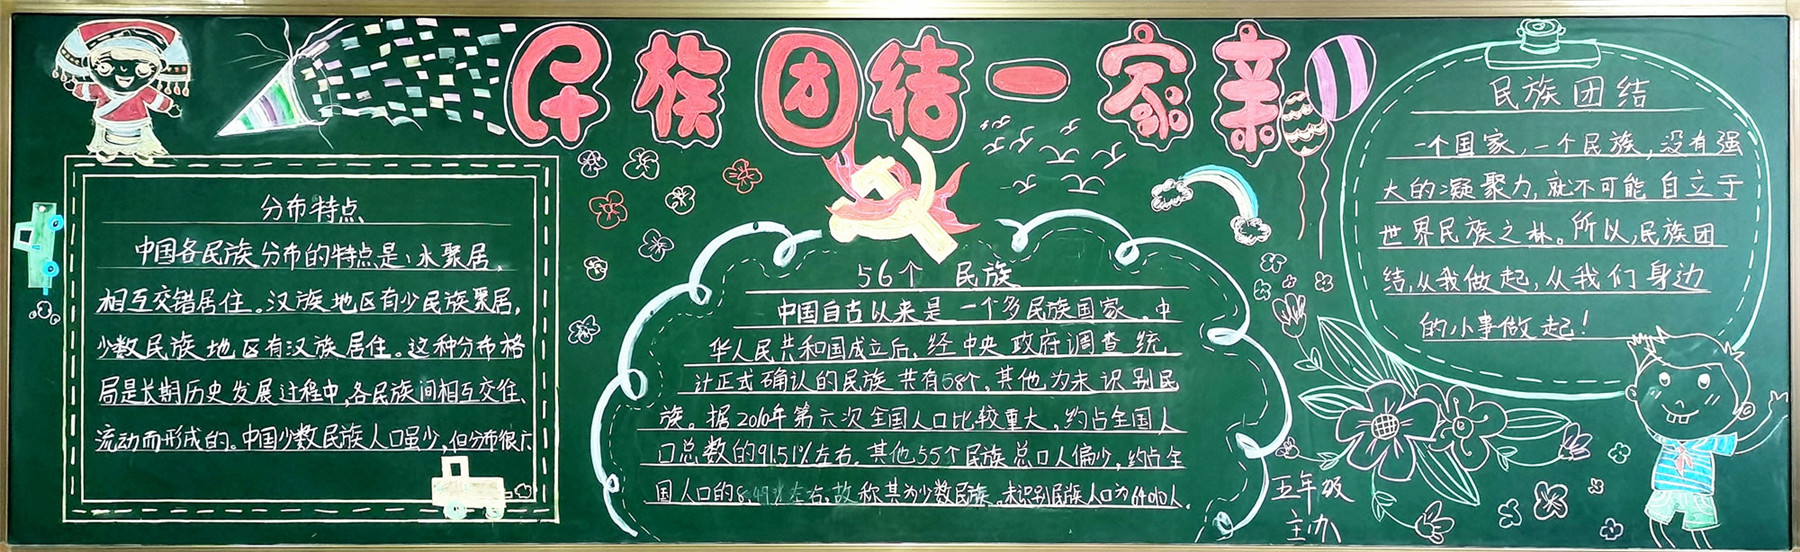 民族团结一家亲
分布特点
中国各民族分布的特点是：水聚居，
相互交错居住。汉族地区有少民族聚居，
少数民族地区有汉族居住。这种分布格
局是长期历史发展过程中，各民族间相互交往、
流动而形成的。中国少数民族人口虽少，但分布很广
56个 民族
中国自古以来是一个多民族国家。中
华人民共和国成立后，经中央政府调查统
计正式确认的民族共有58个，其他为未识别民
族。据2010年第六次全国人口比较重大，约占全国人
口总数的91.51%左右，其他55个民族总口人偏少，约占全
国人口的8.49%左右，故称其为少数民族。未识别民族人口为64010人.
民族团结
一个国家，一个民族，没有强
大的凝聚力，就不可能自立于
世界民族之林。所以，民族团
结，从我做起，从我们身边
的小事做起！
五年级
主办